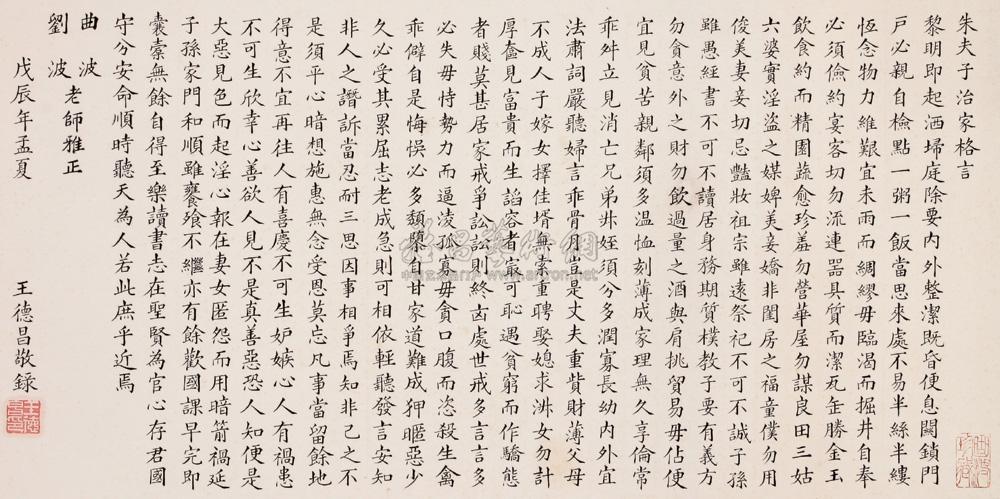 朱夫子治家格言
黎明即起洒埽庭除要內外整潔既昏便息關鎖門
戶必親自檢點一粥一飯當思來處不易半絲半縷
恆念物力維艱宜未雨而綢繆毋臨渴而掘井自奉
必須儉約宴客切勿流連噐具質而潔瓦缶勝金玉
飲食約而精園蔬愈珍羞勿營華屋勿謀良田三姑
六婆實淫盜之媒婢美妾嬌非閨房之福童僕勿用
俊美妻妾切忌豔妝祖宗雖遠祭祀不可不誠子孫
雖愚經書不可不讀居身務期質樸教子要有義方
勿貪意外之財勿飲過量之酒與肩挑貿易毋佔便
宜見貧苦親鄰須多温恤刻薄成家理無久享倫常
乖舛立見消亡兄弟叔姪須分多潤寡長幼內外宜
法肅詞嚴聽婦言乖骨肉豈是丈夫重貲財薄父母
不成人子嫁女擇佳壻無索重聘娶媳求淑女勿計
厚奩見富貴而生諂容者最可恥遇貧窮而作驕態
者賤莫甚居家戒爭訟訟則終凶處世戒多言言多
必失毋恃勢力而逼凌孤寡毋貪口腹而恣殺生禽
乖僻自是悔悞必多頹隳自甘家道難成狎暱惡少
久必受其累屈志老成急則可相依輕聽發言安知
非人之譖訴當忍耐三思因事相爭焉知非己之不
是須平心暗想施惠無念受恩莫忘凡事當留餘地
得意不宜再往人有喜慶不可生妒嫉心人有禍患
不可生欣幸心善欲人見不是真善惡恐人知便是
大惡見色而起淫心報在妻女匿怨而用暗箭禍延
子孫家門和順雖饔飧不繼亦有餘歡國課早完即
囊橐無餘自得至樂讀書志在聖賢為官心存君國
守分安命順時聽天為人若此庶乎近焉
曲波
劉波
老師雅正
戊辰年孟夏
王德昌敬録